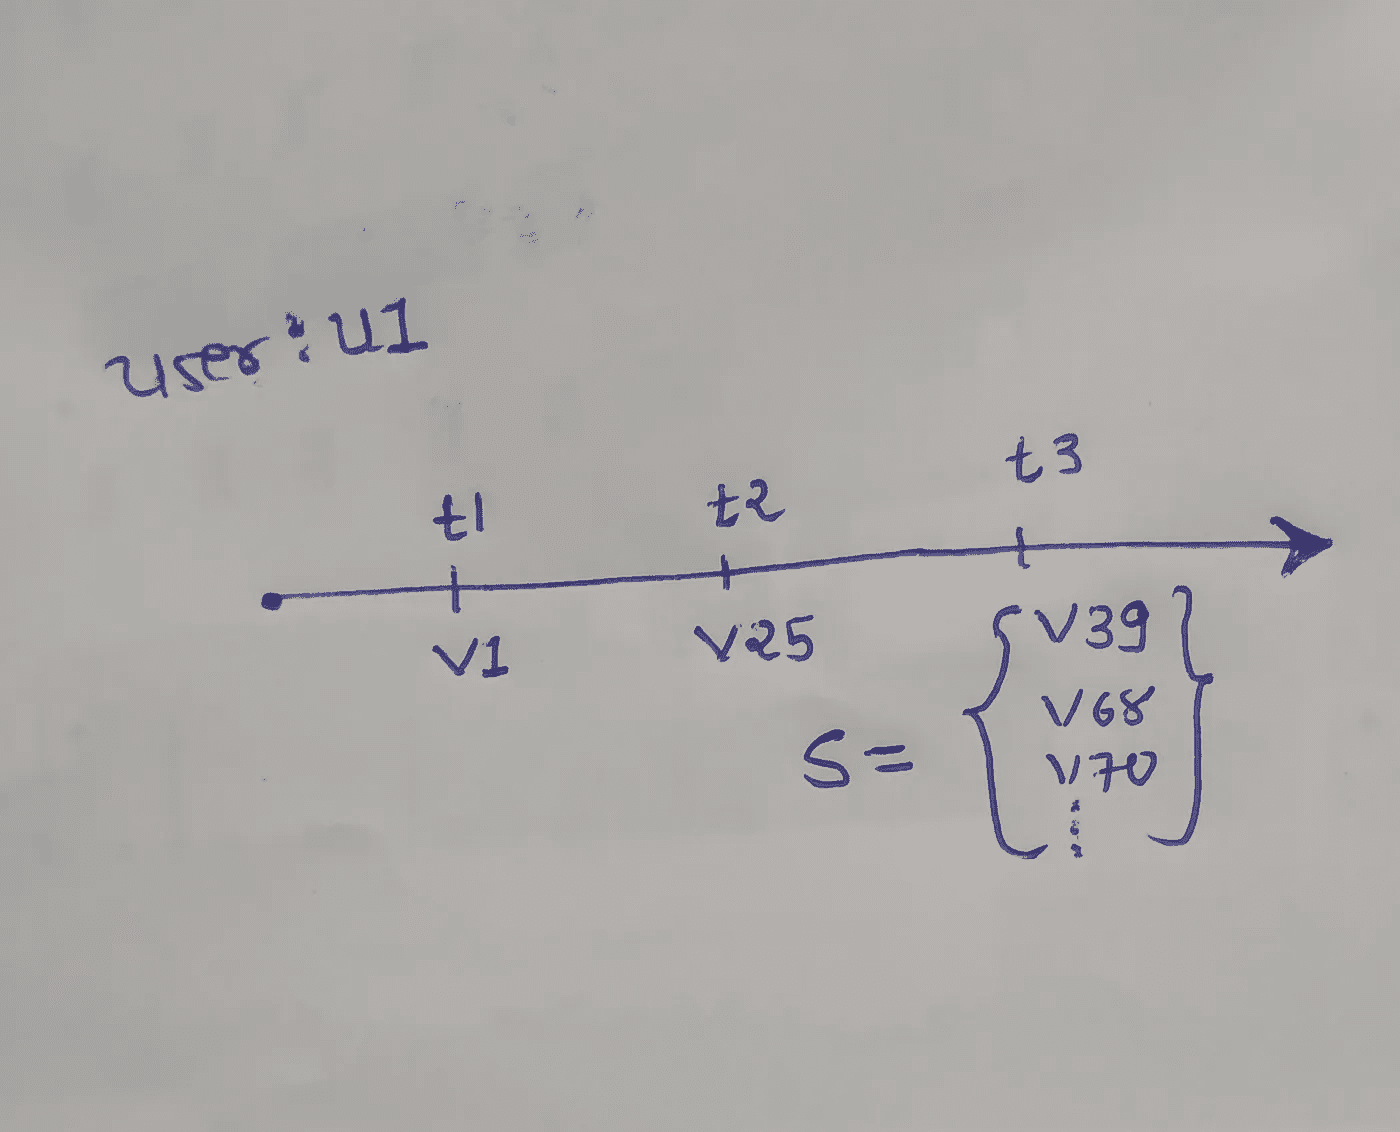 user: u1
t1 t2 t3
v1 v25
S = { v39
v68
v70
⋮ }